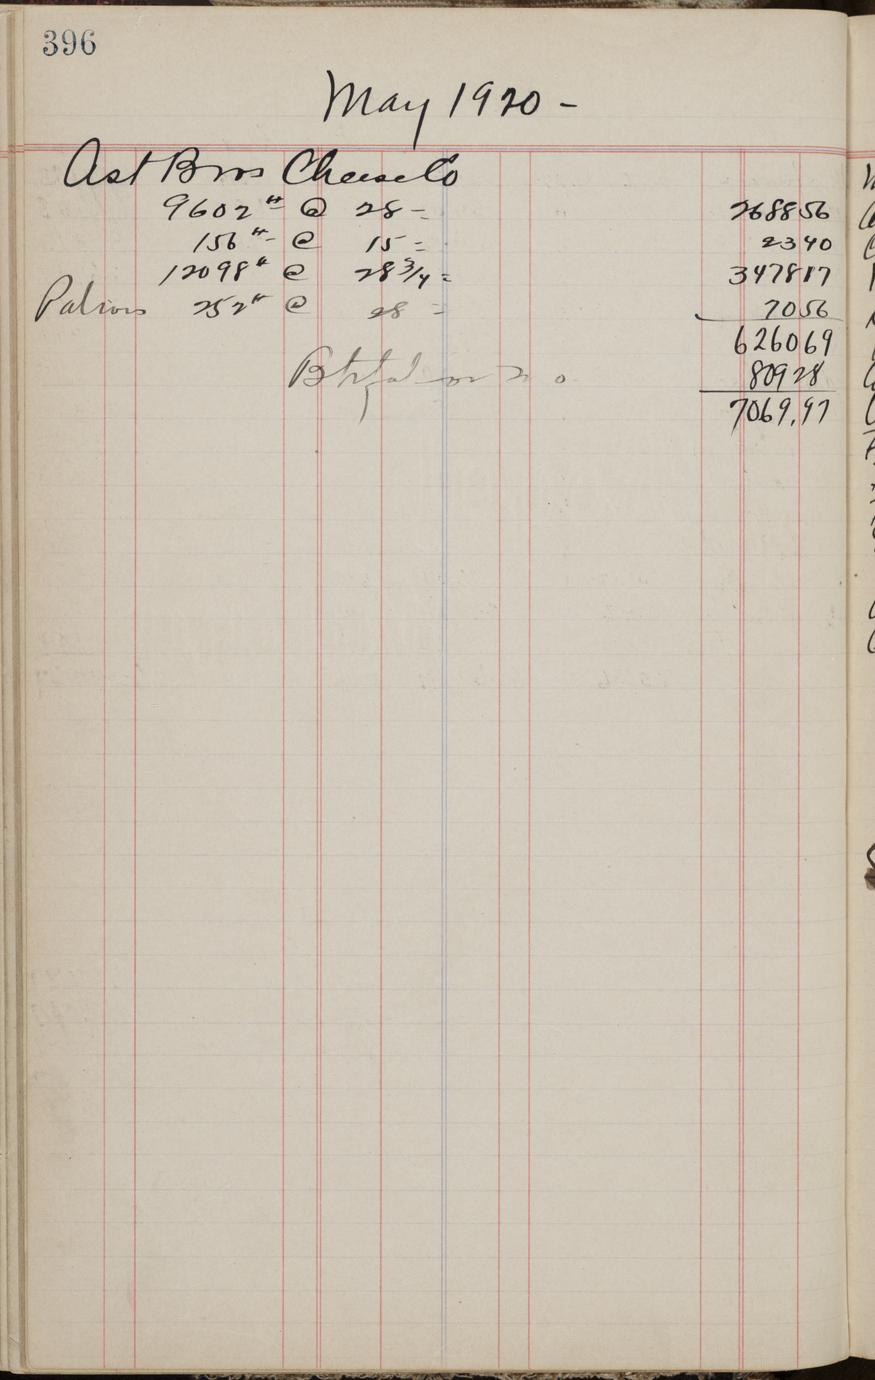 396
May 1920 -
Ast Bros Cheese Co
9602 # @ 28 = 268856
156 # @ 15 = 2340
12098 # @ 28 3/4 = 347817
Patrons 252 # @ 28 = 7056
626069
80928
7069.97